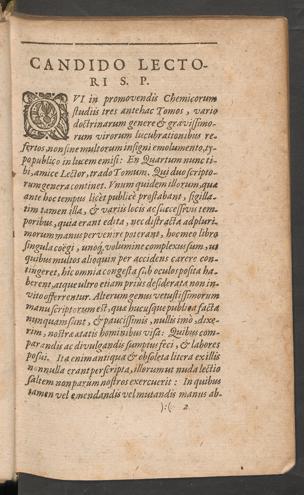 CANDIDO LECTO-
RI S. P.
QVI in promovendis Chemicorum
studiis tres antehac Tomos, vario
doctrinarum genere & gravissimo-
rum virorum lucubrationibus re-
fertos, non sine multorum insigni emolumento, ty-
po publico in lucem emisi: En Quartum nunc ti-
bi, amice Lector, trado Tomum. Qui duo scripto-
rum genera continet. Vnum quidem illorum, quæ
ante hoc tempus licèt publicè prostabant, sigilla-
tim tamen illa, & variis locis ac successivis tem-
poribus, quia erant edita, nec distracta ad pluri-
morum manus pervenire poterant, hoc meo libro
singula coëgi, unoq́; volumine complexus sum, ut
quibus multos alioquin per accidens carere con-
tingeret, hic omnia congesta sub oculos posita ha-
berent, atque ultro etiam prius desiderata non in-
vito offerrentur. Alterum genus vetustissimorum
manuscriptorum est, quæ hucusque publica facta
nunquam sunt, & paucissimis, nullis imò, dixe-
rim, nostræ ætatis hominibus visa: Quibus com-
parandis ac divulgandis sumptus feci, & labores
posui. Ita enim antiqua & obsoleta litera exillis
nonnulla erant perscripta, illorum ut nuda lectio
saltem non parùm nostros exercuerit: In quibus
tamen vel emendandis vel mutandis manus ab-
):(. 2